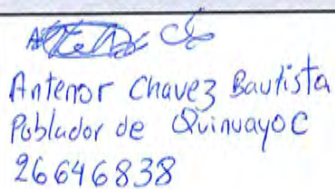 Antenor Chavez Bautista
Poblador de Quinuayoc
26646838